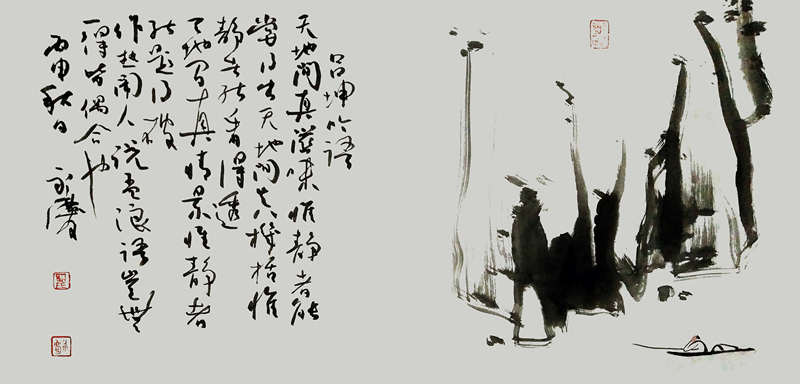 吕坤吟语
天地间真滋味惟静者能
嘗得出天地间真機括惟
静者能看得透
天地间真情景惟静者
能题得破
作热闹人说孟浪语岂無
一得皆偶合也
丙申秋日